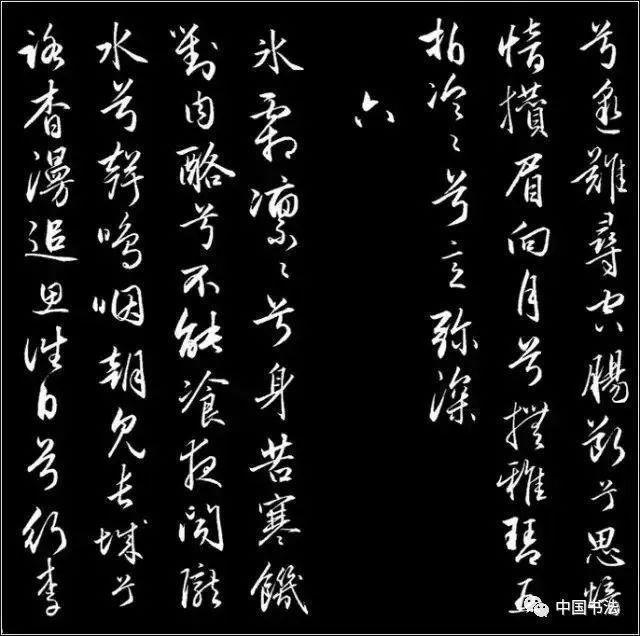 兮邈難尋空腸斷兮思愔
愔攢眉向月兮撫雅琴五
拍泠〻兮意弥深
六
冰霜凛〻兮身苦寒饑
對肉酪兮不能飡夜聞隴
水兮聲嗚咽朝見長城兮
路杳漫追思往日兮行李
中国书法